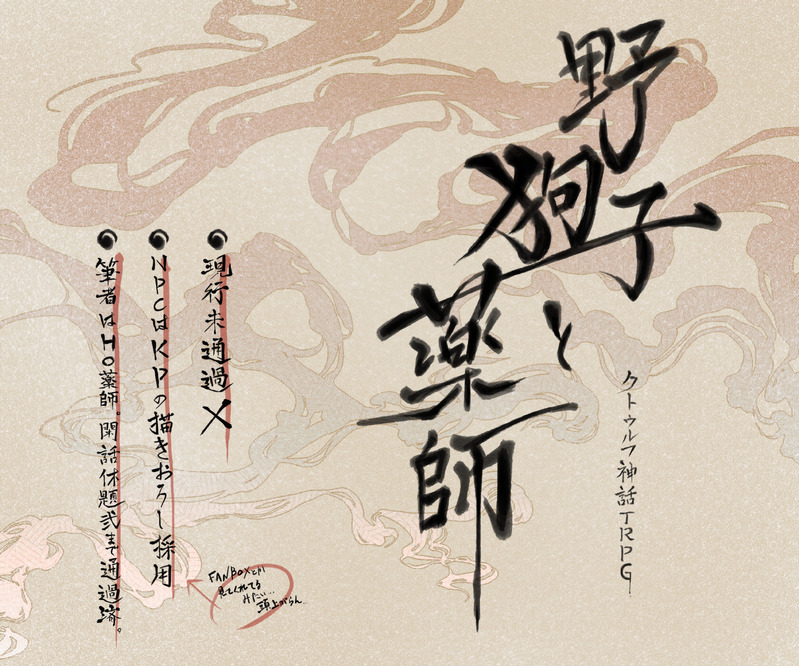 野狗子と薬師
クトゥルフ神話TRPG
現行未通過×
NPCはKPの描きおろし採用
FANBOXとか
見てくれてる
みたい…
頭上がらん
筆者はHO薬師。閑話休題弐まで通過済。